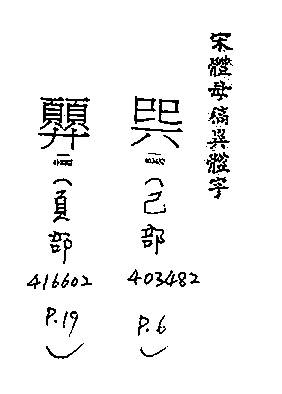 宋體母稿異體字
（己部
403482
P.6
）
（頁部
416602
P.19
）